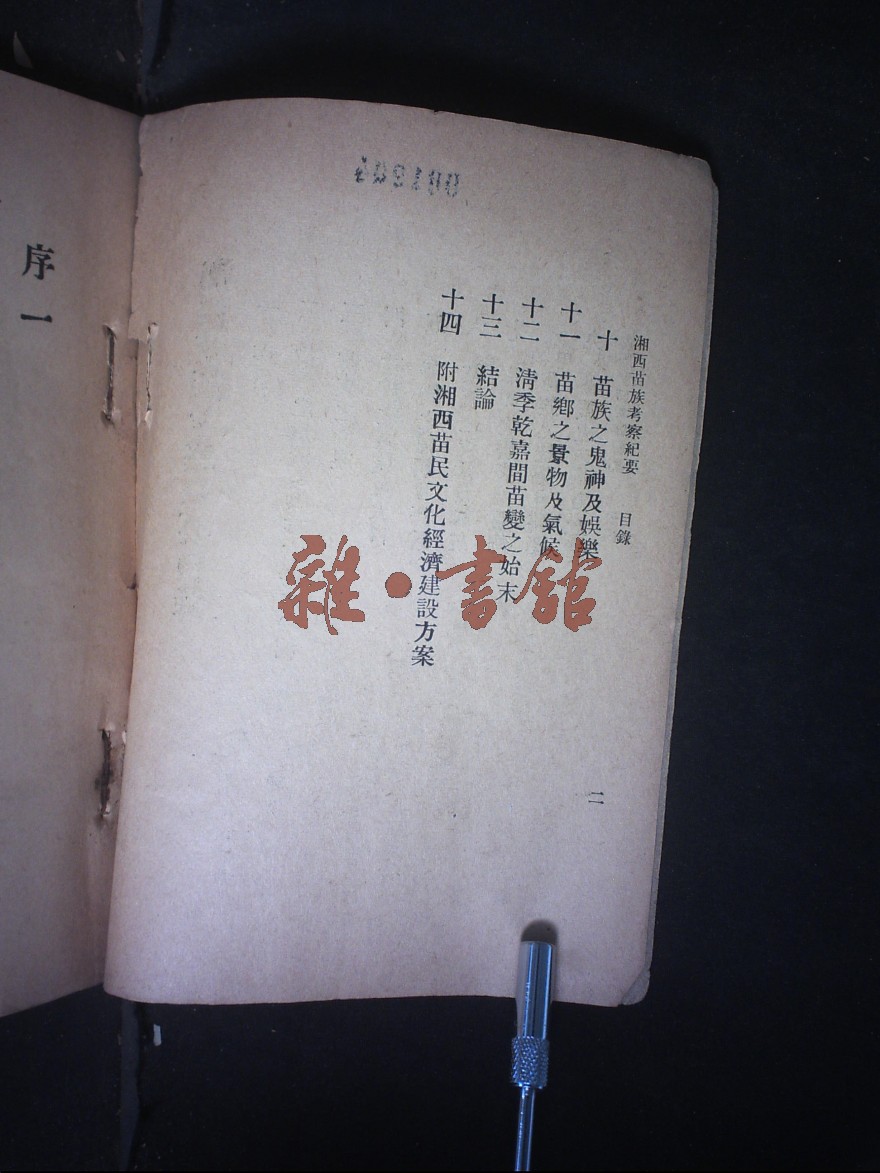 湘西苗族考察紀要 目錄
十 苗族之鬼神及娛樂
十一 苗鄉之景物及氣候
十二 清季乾嘉間苗變之始末
十三 結論
十四 附湘西苗民文化經濟建設方案
二
序一
雜·書館